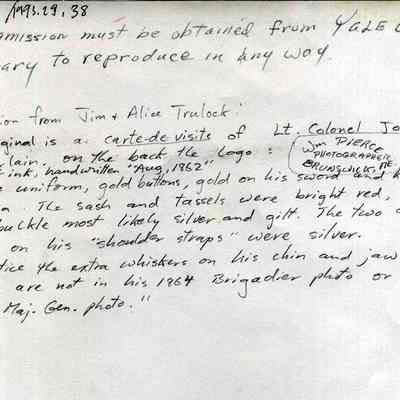 1993.29.38
mission must be obtained from YALE
rary to reproduce in any way.
ion from Jim & Alice Trulock:
ginal is a carte-de-visits of Lt. Colonel Jo
lain. on the back the logo: Wm PIERCE
PHOTOGRAPHER,
BRUNSWICK, ME.
ink, handwritten "Aug, 1862"
e uniform, gold buttons, gold on his sword and
The sash and tassels were bright red,
buckle most likely silver and gilt. The two
on his "shoulder straps" were silver.
tice the extra whiskers on his chin and jaw
are not in his 1864 Brigadier photo or
Maj. Gen. photo."